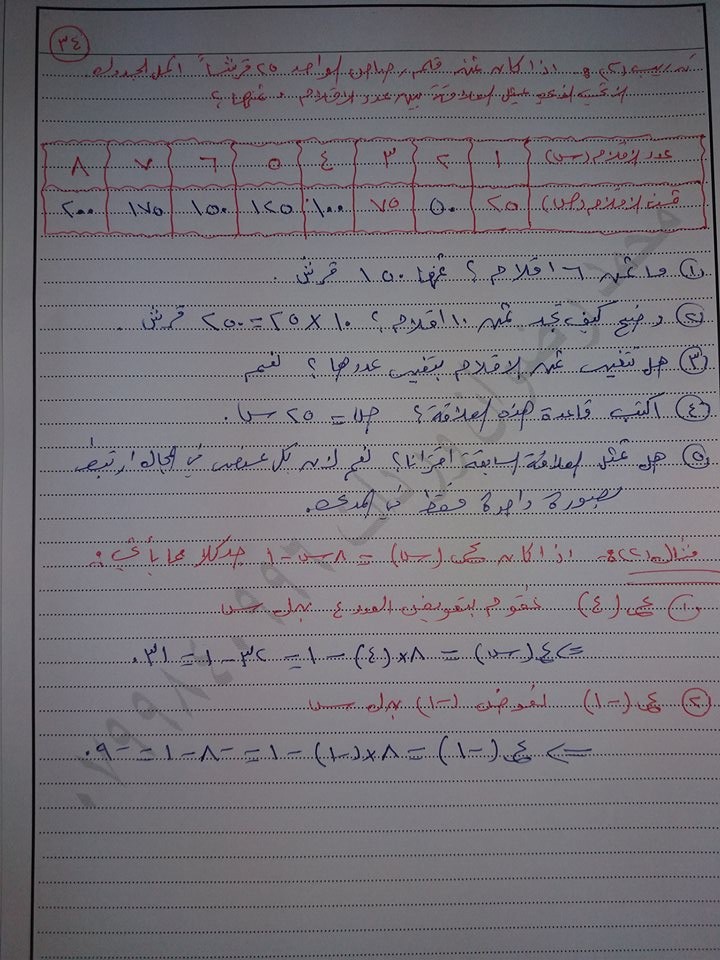 ٣٤
تدريب (٢): اذا كان ثمن قلم رصاص الواحد ٢٥ قرشاً اكمل الجدول
الآتي الذي يمثل العلاقة بين عدد الاقلام و ثمنها؟
عدد الاقلام (س) ١ ٢ ٣ ٤ ٥ ٦ ٧ ٨
الاقلام (ص) ٢٥ ٥٠ ٧٥ ١٠٠ ١٢٥ ١٥٠ ١٧٥ ٢٠٠
① ما ثمن ٦ اقلام؟ ثمنها ١٥٠ قرش.
② وضح كيف تجد ثمن ١٠ اقلام؟ ١٠ × ٢٥ = ٢٥٠ قرش.
③ هل تتغير ثمن الاقلام بتغير عددها؟ نعم
④ اكتب قاعدة هذه العلاقة؟ ص = ٢٥ س.
⑤ هل تمثل العلاقة السابقة اقترانا؟ نعم لان كل عنصر في المجال ارتبط
بصورة واحدة فقط في المدى.
مثال (٢): اذا كان (س) = ٨س - ١ جد كلا مما يأتي:
① (٤) نقوم بتعويض العدد ٤ بدل س
=> (س) = ٨×(٤) - ١ = ٣٢ - ١ = ٣١.
② (-١) نعوض (-١) بدل س
=> (-١) = ٨×(-١) - ١ = -٨ - ١ = -٩.